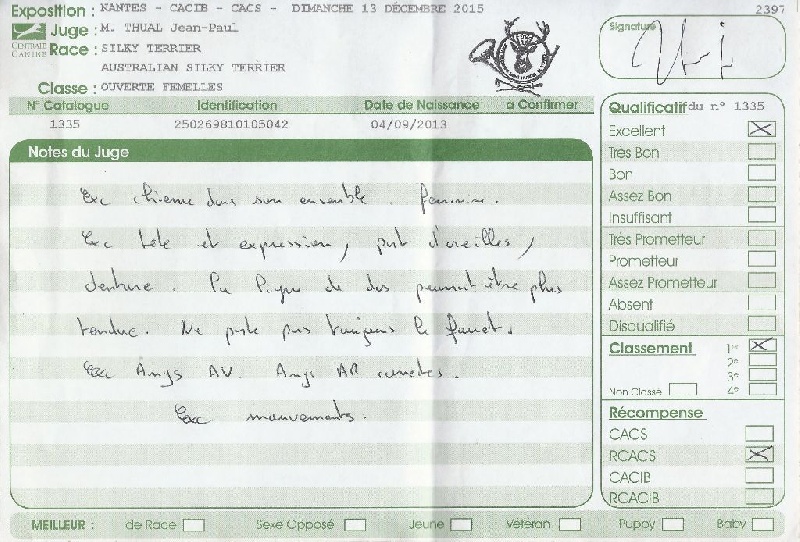 Exposition : NANTES - CACIB - CACS - DIMANCHE 13 DÉCEMBRE 2015
2397
CENTRALE CANINE
Juge : M. THUAL Jean-Paul
Race : SILKY TERRIER
AUSTRALIAN SILKY TERRIER
Classe : OUVERTE FEMELLES
Signature
N° Catalogue Identification Date de Naissance à Confirmer
1335 250269810105042 04/09/2013
Notes du Juge
Exc chienne dans son ensemble. féminine.
Exc tête et expression, port d'oreilles,
denture. La ligne de dos pourrait être plus
tendue. Ne porte pas toujours le fouet.
Exc Angs AV. Angs AR correctes.
Exc mouvements.
Qualificatif du n° 1335
Excellent
Très Bon
Bon
Assez Bon
Insuffisant
Très Prometteur
Prometteur
Assez Prometteur
Absent
Disqualifié
Classement 1er
2e
3e
Non Classé 4e
Récompense
CACS
RCACS
CACIB
RCACIB
MEILLEUR : de Race Sexe Opposé Jeune Vétéran Puppy Baby